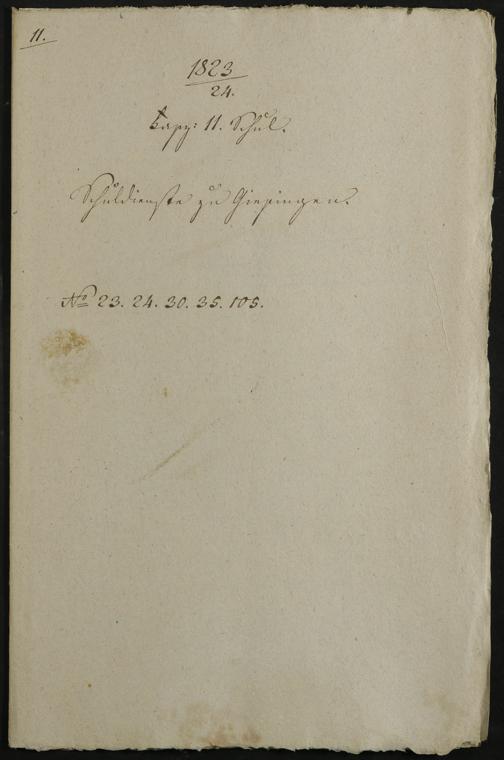 11.
1823
24.
Kapp: 11. Schul.
Schuldienste zu Giesingen.
No 23. 24. 30. 35. 105.